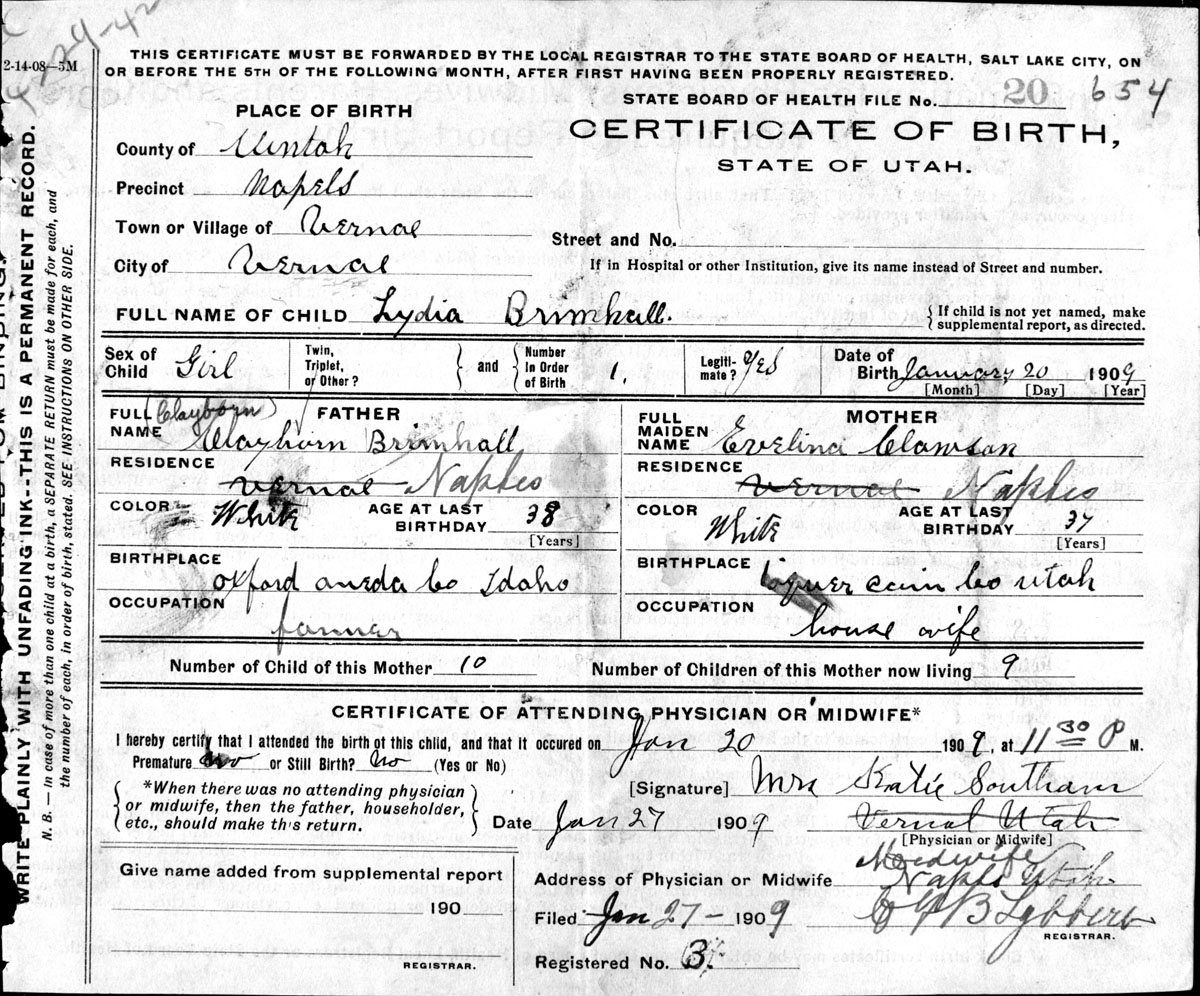 29-42
2-14-08—5M
THIS CERTIFICATE MUST BE FORWARDED BY THE LOCAL REGISTRAR TO THE STATE BOARD OF HEALTH, SALT LAKE CITY, ON
OR BEFORE THE 5TH OF THE FOLLOWING MONTH, AFTER FIRST HAVING BEEN PROPERLY REGISTERED.
STATE BOARD OF HEALTH FILE No. 20 654
CERTIFICATE OF BIRTH,
STATE OF UTAH.
PLACE OF BIRTH
County of Uintah
Precinct Napels
Town or Village of Vernal
Street and No.
City of Vernal
If in Hospital or other Institution, give its name instead of Street and number.
FULL NAME OF CHILD Lydia Brimhall.
{ If child is not yet named, make
supplemental report, as directed.
Sex of Child Girl
Twin, Triplet, or Other? } and { Number In Order of Birth 1.
Legitimate? Yes
Date of Birth January 20 1909
[Month] [Day] [Year]
FATHER
FULL NAME (Clayborn) Clayborn Brimhall
RESIDENCE Vernal Naples
COLOR White AGE AT LAST BIRTHDAY 38
[Years]
BIRTHPLACE Oxford oneda Co Idaho
OCCUPATION farmer
MOTHER
FULL MAIDEN NAME Evelina Clawson
RESIDENCE Vernal Naples
COLOR White AGE AT LAST BIRTHDAY 37
[Years]
BIRTHPLACE Co Utah
OCCUPATION house wife
Number of Child of this Mother 10 Number of Children of this Mother now living 9
CERTIFICATE OF ATTENDING PHYSICIAN OR MIDWIFE*
I hereby certify that I attended the birth of this child, and that it occured on Jan 20 1909, at 11 30 P M.
Premature no or Still Birth? No (Yes or No)
[Signature] Mrs Katie Southam
{ *When there was no attending physician
or midwife, then the father, householder,
etc., should make this return. }
Date Jan 27 1909 Vernal Utah
[Physician or Midwife]
Midwife
Give name added from supplemental report
190
REGISTRAR.
Address of Physician or Midwife Naples Utah
Filed Jan 27 - 1909
REGISTRAR.
Registered No. 3.
WRITE PLAINLY WITH UNFADING INK-THIS IS A PERMANENT RECORD.
N. B. — In case of more than one child at a birth, a SEPARATE RETURN must be made for each, and
the number of each, in order of birth, stated. SEE INSTRUCTIONS ON OTHER SIDE.